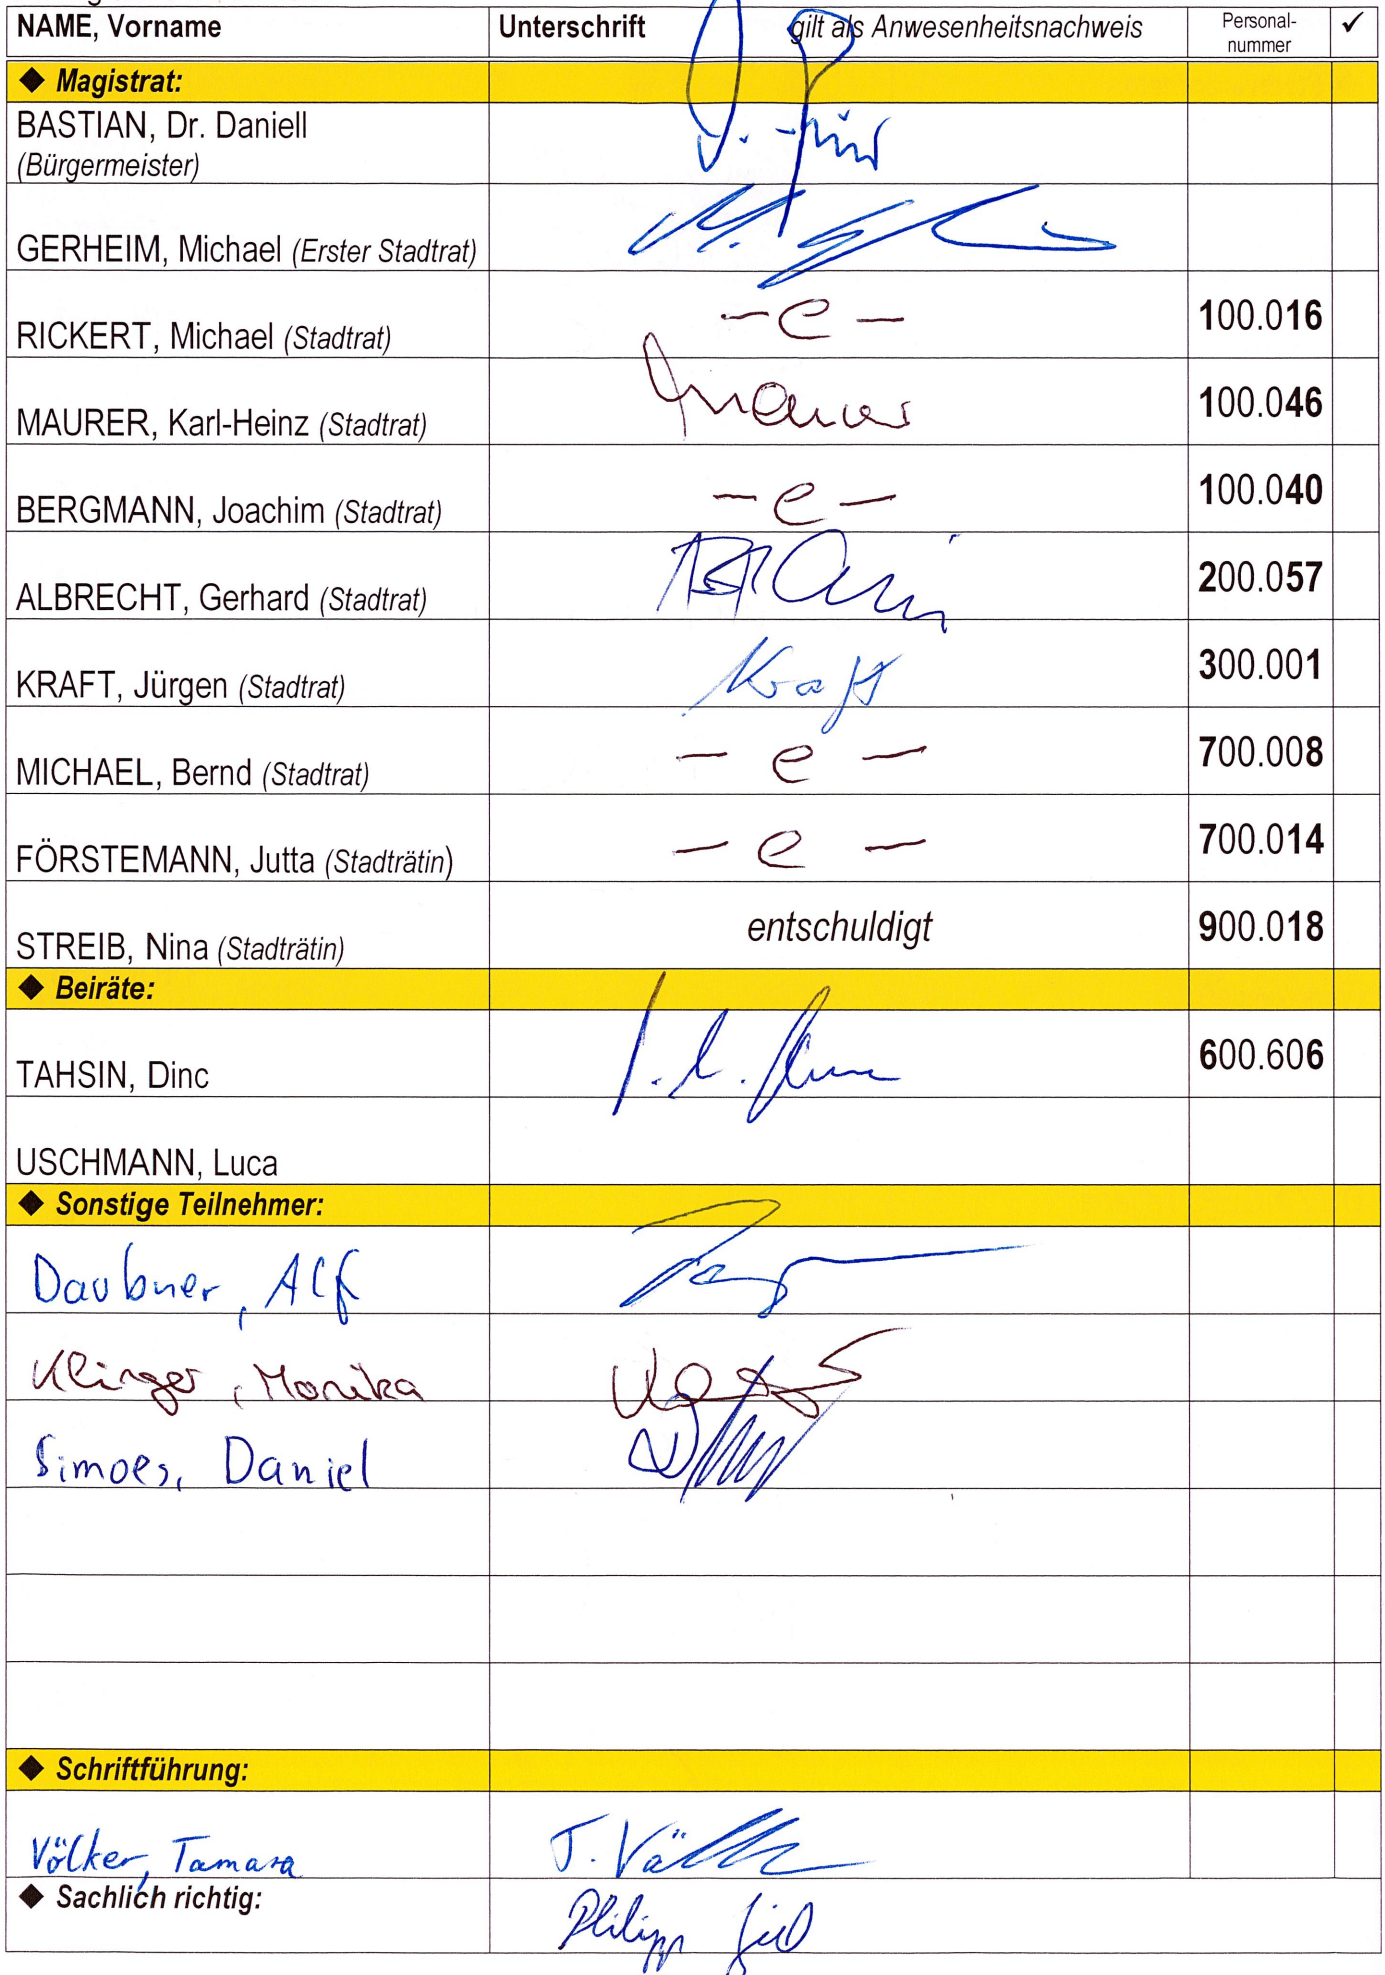 NAME, Vorname Unterschrift gilt als Anwesenheitsnachweis Personal-nummer ✓
◆ Magistrat:
BASTIAN, Dr. Daniell
(Bürgermeister)
GERHEIM, Michael (Erster Stadtrat)
RICKERT, Michael (Stadtrat) – e – 100.016
MAURER, Karl-Heinz (Stadtrat) Maurer 100.046
BERGMANN, Joachim (Stadtrat) – e – 100.040
ALBRECHT, Gerhard (Stadtrat) 200.057
KRAFT, Jürgen (Stadtrat) Kraft 300.001
MICHAEL, Bernd (Stadtrat) – e – 700.008
FÖRSTEMANN, Jutta (Stadträtin) – e – 700.014
STREIB, Nina (Stadträtin) entschuldigt 900.018
◆ Beiräte:
TAHSIN, Dinc 600.606
USCHMANN, Luca
◆ Sonstige Teilnehmer:
Daubner, Alf
Klinger, Monika
Simoes, Daniel
◆ Schriftführung:
Völker, Tamara T. Völk
◆ Sachlich richtig: Philipp